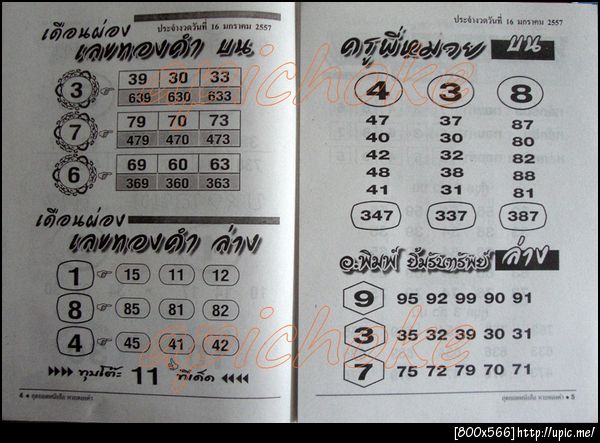 ประจำงวดวันที่ 16 มกราคม 2557
เดือนผ่อง
เลขทองคำ บน
3
39 30 33
639 630 633
7
79 70 73
479 470 473
6
69 60 63
369 363 363
เดือนผ่อง
เลขทองคำ ล่าง
1 15 11 12
8 85 81 82
4 45 41 42
ทุบโต๊ะ 11 ทีเด็ด
4
ประจำงวดวันที่ 16 มกราคม 2557
ครูพี่หมวย บน
4 3 8
47 37 87
40 30 80
42 32 82
48 38 88
41 31 81
347 337 387
อ.พิมพ์ ยิ้มรับทรัพย์ ล่าง
9 95 92 99 90 91
3 35 32 39 30 31
7 75 72 79 70 71
5
apichoke
apichoke
[800x566] http://upic.me/